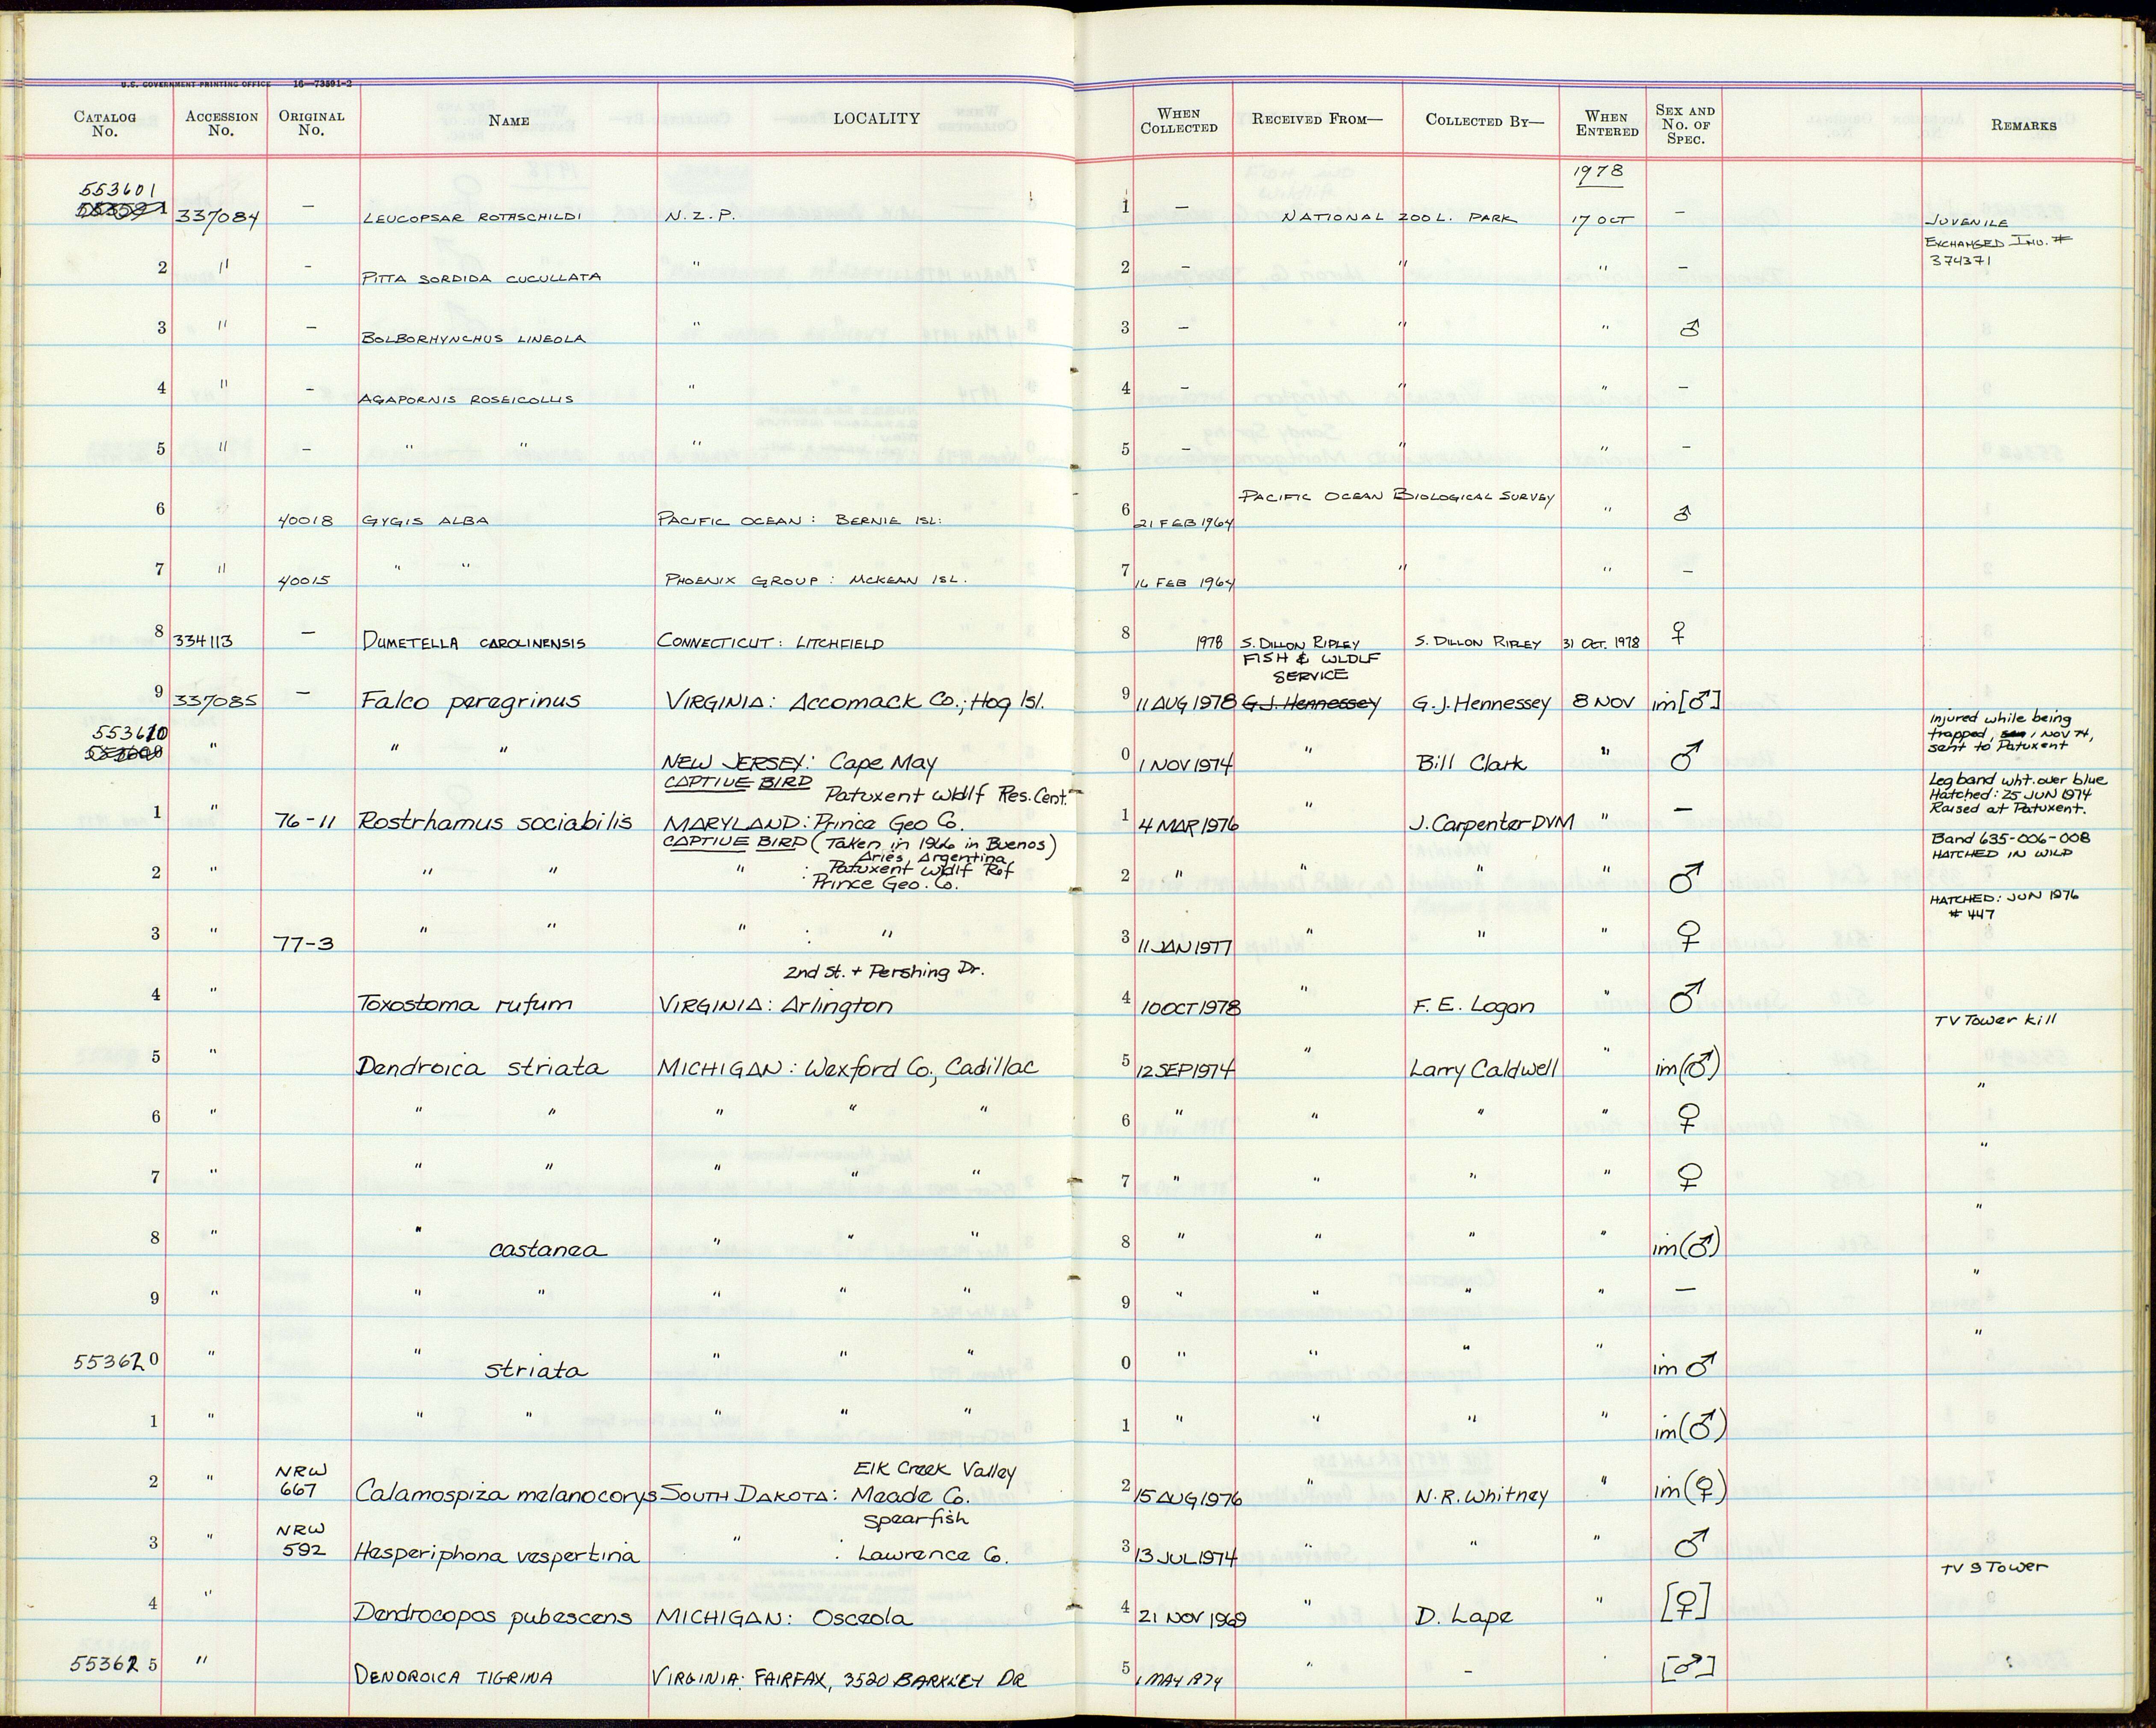 U.S. GOVERNMENT PRINTING OFFICE 16—73591-2
CATALOG No. ACCESSION No. ORIGINAL No. NAME LOCALITY WHEN COLLECTED RECEIVED FROM— COLLECTED BY— WHEN ENTERED SEX AND No. OF SPEC. REMARKS
1978
553601
1 337084 — LEUCOPSAR ROTHSCHILDI N.Z.P. 1 — NATIONAL ZOOL. PARK 17 OCT — JUVENILE
EXCHANGED INV. #
374371
2 " - PITTA SORDIDA CUCULLATA " 2 - " " -
3 " - BOLBORHYNCHUS LINEOLA " 3 - " " ♂
4 " - AGAPORNIS ROSEICOLLIS " 4 - " " -
5 " - " " " 5 - " " -
PACIFIC OCEAN BIOLOGICAL SURVEY
6 40018 GYGIS ALBA PACIFIC OCEAN: BERNIE ISL: 6 21 FEB 1964 " ♂
7 " 40015 " " PHOENIX GROUP: MCKEAN ISL. 7 16 FEB 1964 " " -
8 334113 — DUMETELLA CAROLINENSIS CONNECTICUT: LITCHFIELD 8 1978 S. DILLON RIPLEY S. DILLON RIPLEY 31 OCT. 1978 ♀
FISH & WLDLF
SERVICE
9 337085 — Falco peregrinus VIRGINIA: Accomack Co.; Hog Isl. 9 11 AUG 1978 G.J. Hennessey G.J. Hennessey 8 NOV im[♂]
Injured while being
trapped, 1 NOV 74,
sent to Patuxent
553610
" " " NEW JERSEY: Cape May 0 1 NOV 1974 " Bill Clark " ♂
CAPTIVE BIRD
Patuxent Wldlf Res. Cent.
Leg band wht. over blue
Hatched: 25 JUN 1974
Raised at Patuxent.
1 " 76-11 Rostrhamus sociabilis MARYLAND: Prince Geo Co. 1 4 MAR 1976 " J. Carpenter DVM " —
CAPTIVE BIRD (Taken in 1966 in Buenos)
Aries, Argentina
Band 635-006-008
HATCHED IN WILD
2 " " " " : Patuxent Wldlf Ref 2 " " " " ♂
Prince Geo. Co.
HATCHED: JUN 1976
# 447
3 " 77-3 " " " : " 3 11 JAN 1977 " " " ♀
2nd St. + Pershing Dr.
4 " Toxostoma rufum VIRGINIA: Arlington 4 10 OCT 1978 " F. E. Logan " ♂
TV Tower kill
5 " Dendroica striata MICHIGAN: Wexford Co., Cadillac 5 12 SEP 1974 " Larry Caldwell " im(♂)
"
6 " " " " " " 6 " " " " ♀
"
7 " " " " " " 7 " " " " ♀
"
8 " " castanea " " " 8 " " " " im(♂)
"
9 " " " " " " 9 " " " " —
"
553620 " " striata " " " 0 " " " " im ♂
1 " " " " " " 1 " " " " im(♂)
NRW Elk Creek Valley
2 " 667 Calamospiza melanocorys SOUTH DAKOTA: Meade Co. 2 15 AUG 1976 " N.R. Whitney " im(♀)
NRW Spearfish
3 " 592 Hesperiphona vespertina " : Lawrence Co. 3 13 JUL 1974 " " " ♂
TV 9 Tower
4 " Dendrocopos pubescens MICHIGAN: Osceola 4 21 NOV 1969 " D. Lape " [♀]
553625 " DENDROICA TIGRINA VIRGINIA: FAIRFAX, 3520 BARKLEY DR 5 1 MAY 1974 " - [♂]